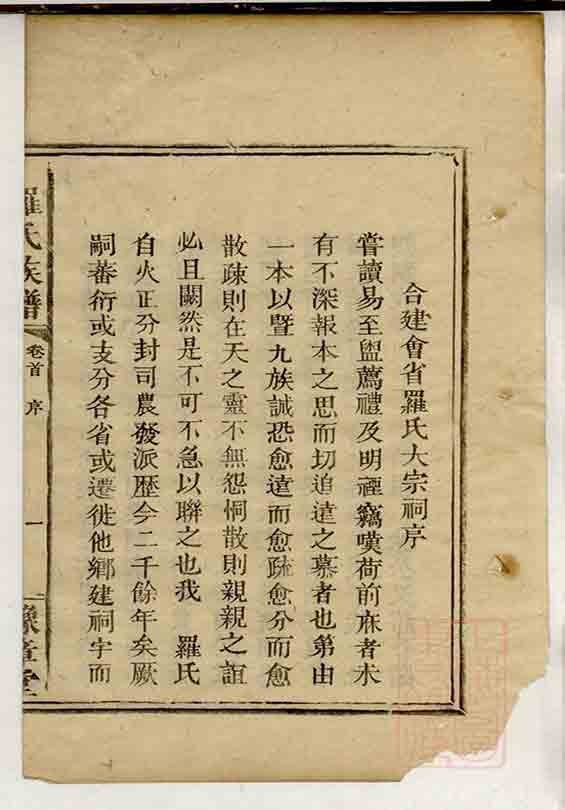 合建會省羅氏大宗祠序
嘗讀易至盥薦禮及明禋竊嘆荷前庥者未
有不深報本之思而切追遠之慕者也第由
一本以曁九族誠恐愈遠而愈疏愈分而愈
散疎則在天之靈不無怨恫散則親親之誼
必且闕然是不可不急以聯之也我 羅氏
自火正分封司農發派歴今二千餘年矣厥
嗣蕃衍或支分各省或遷徙他鄉建祠宇而
羅氏族譜 卷首 序 一 豫章堂